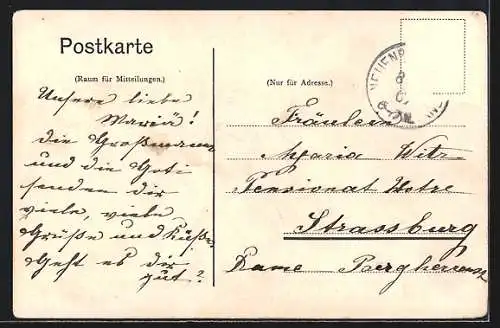 Postkarte
(Raum für Mitteilungen.)
Unsere liebe
Maria!
die Großmama
und die Goti
senden dir
viele, viele
Grüße und Küße.
Geht es dir
gut?
(Nur für Adresse.)
Fräulein
Maria Witz
Pensionat Notre
Strassburg
Dame